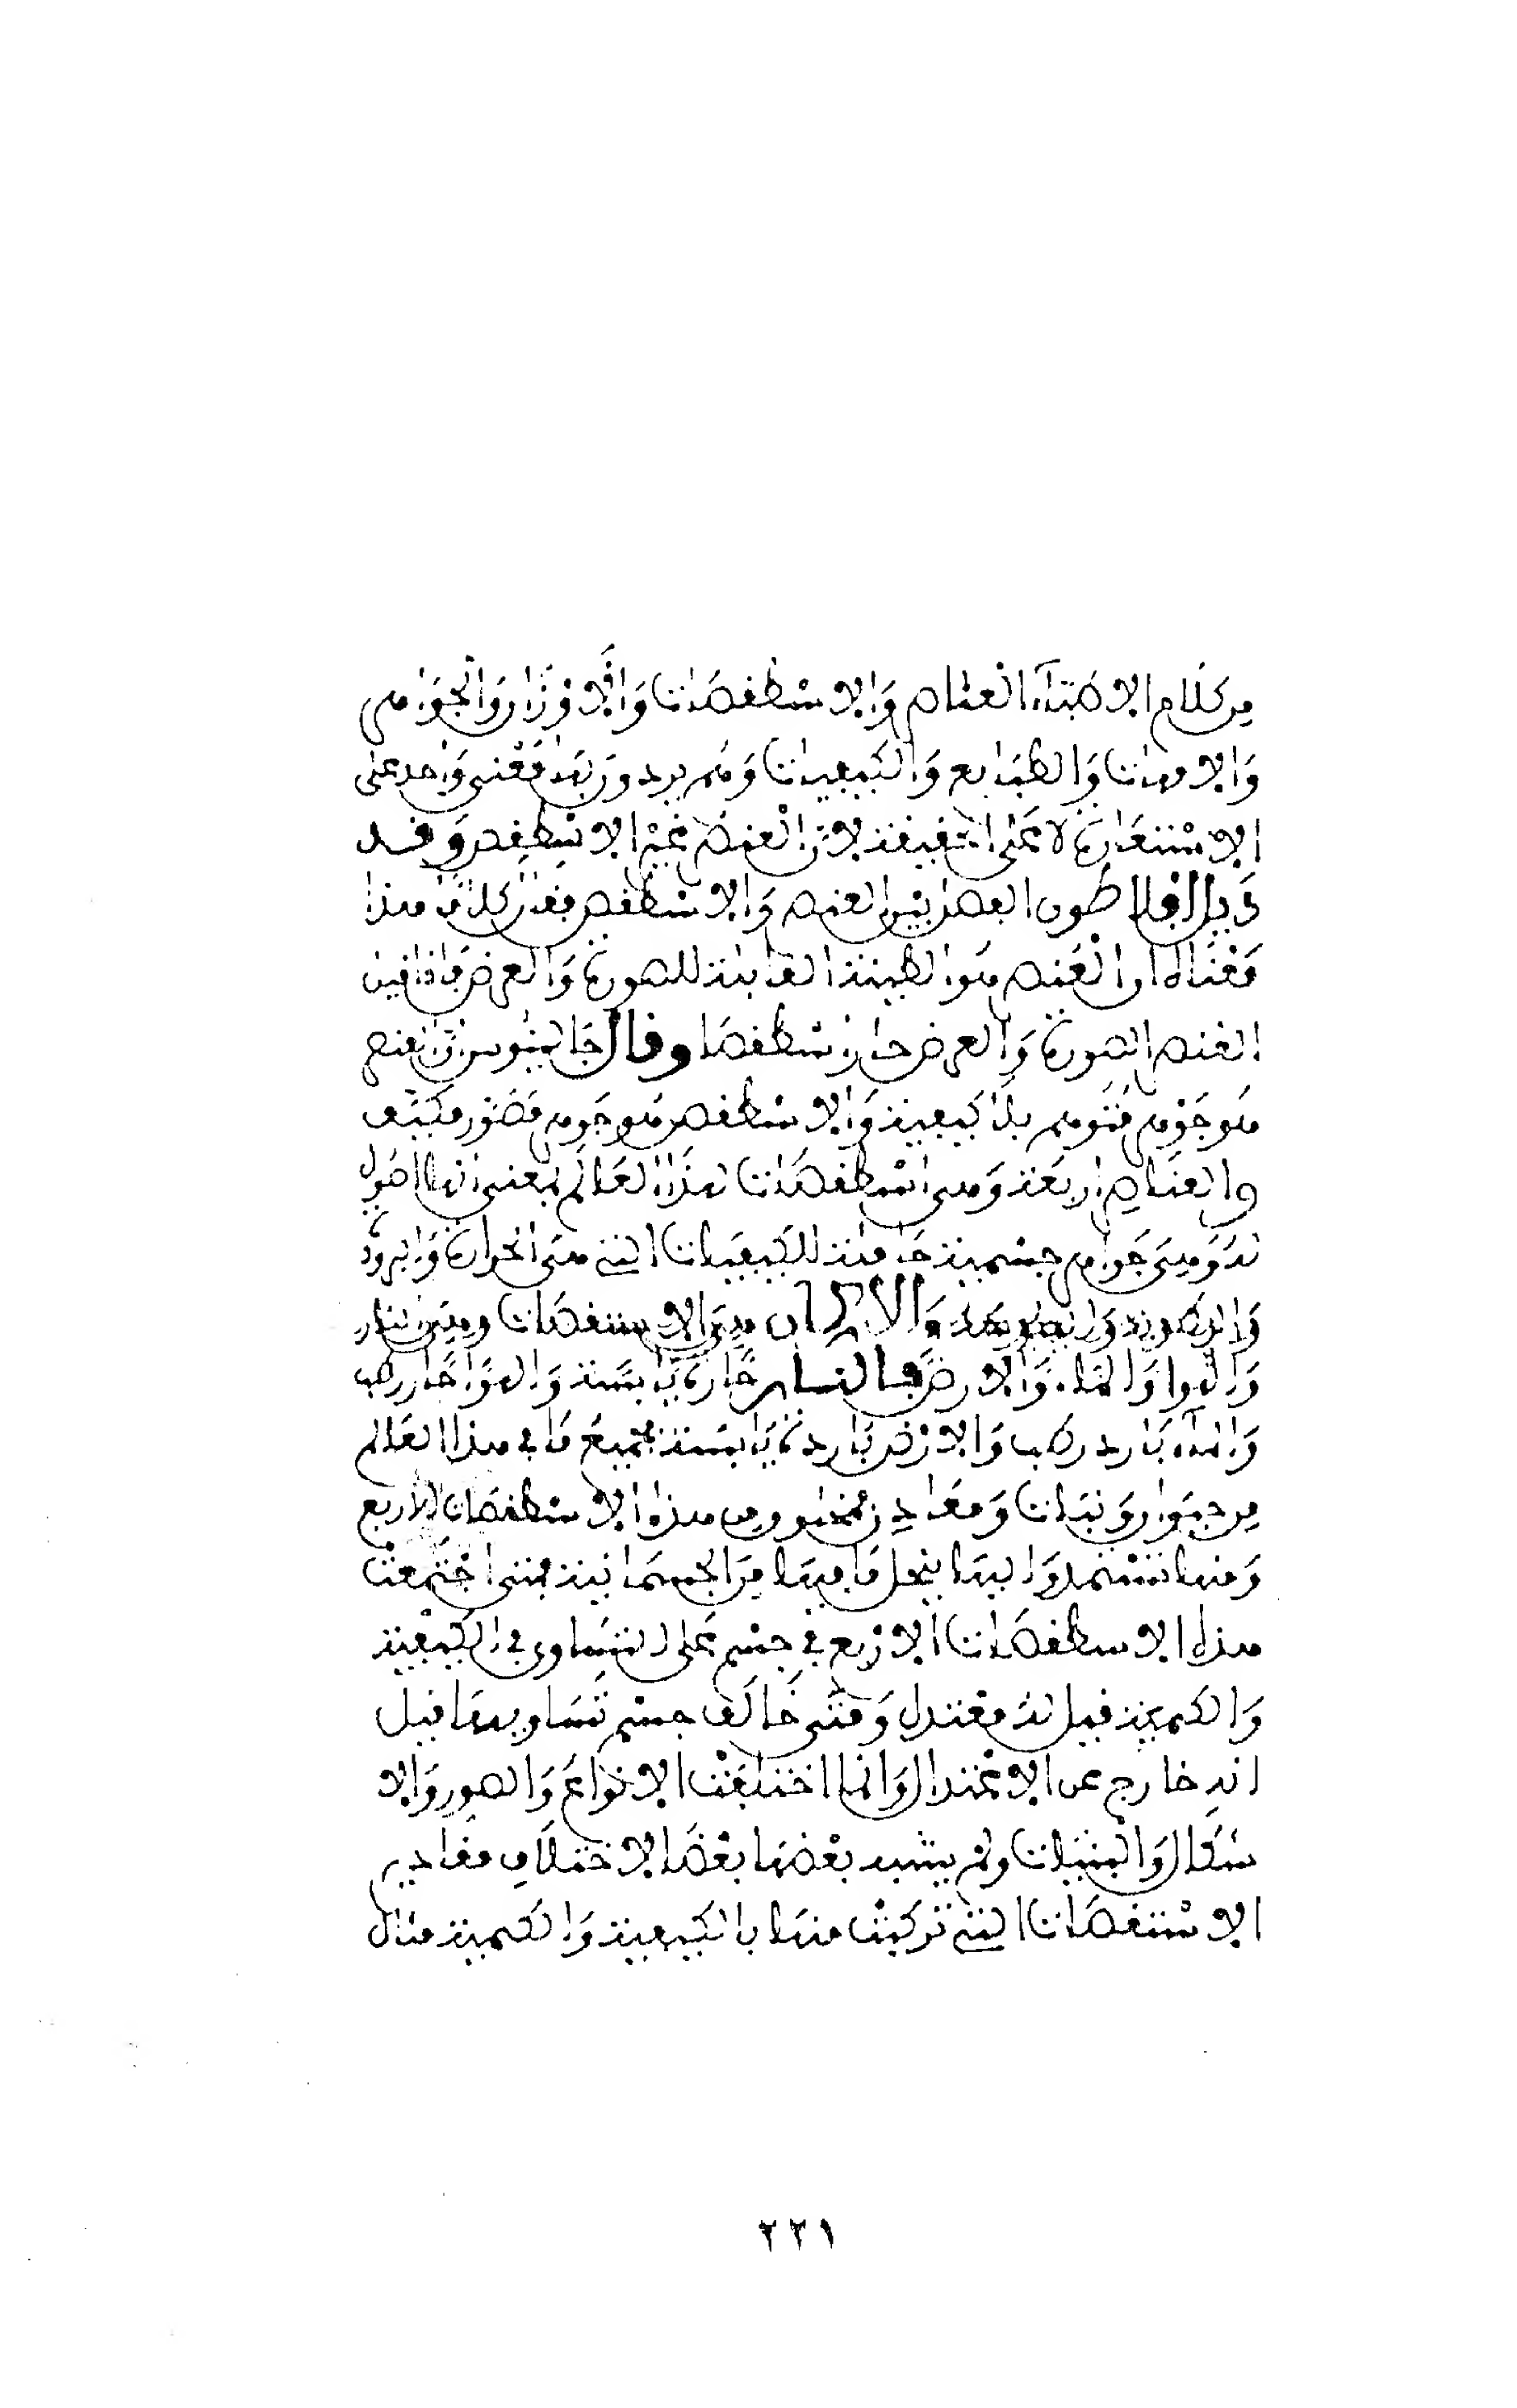 من كلام الاطباء العناصر والاسطقصات والاوزار والجواهر
والامهات والطبايع والكيفيات وهم يريدون بها معنى واحد على
الاستعارة لا على الحقيقة لان العنصر غير الاسطقص وقد
بين افلاطون الفصل بين العنصر والاسطقص فقال كلاما هذا
معناه ان العنصر هو الطينة القابلة للصورة والعرض فاذا قبل
العنصر الصورة والعرض صار اسطقصا وقال جالينوس ان العنصر
هو جوهر متوهم بلا كيفية والاسطقص هو جوهر مصور مكيف
والعناصر اربعة وهي اسطقصات لهذا العالم بمعنى انها اصول
له وهي جواهر جسمية حاملة للكيفيات التي هي الحرارة والبرودة
والرطوبة واليبوسة والاركان هي الاستقصات وهي النار
والهوا والماء والارض فالنار حارة يابسة والهوا حار رطب
والماء بارد رطب والارض باردة يابسة فجميع ما في هذا العالم
من حيوان ونبات ومعادن فمخلوق من هذه الاسطقصات الاربع
ومنها تستمد واليها ينحل ما فيها من الجسمانية فمتى اجتمعت
هذه الاسطقصات الاربع في جسم على التساوي في الكيفية
والكمية قيل له معتدل ومتى خالف جسم تساويها قيل
انه خارج عن الاعتدال وانما اختلفت الانواع والصور والا
شكال والبنيات ولم يشبه بعضها بعضا لاختلاف مقادير
الاستقصات التي تركبت منها بالكيفية والكمية مثال
٢٢١